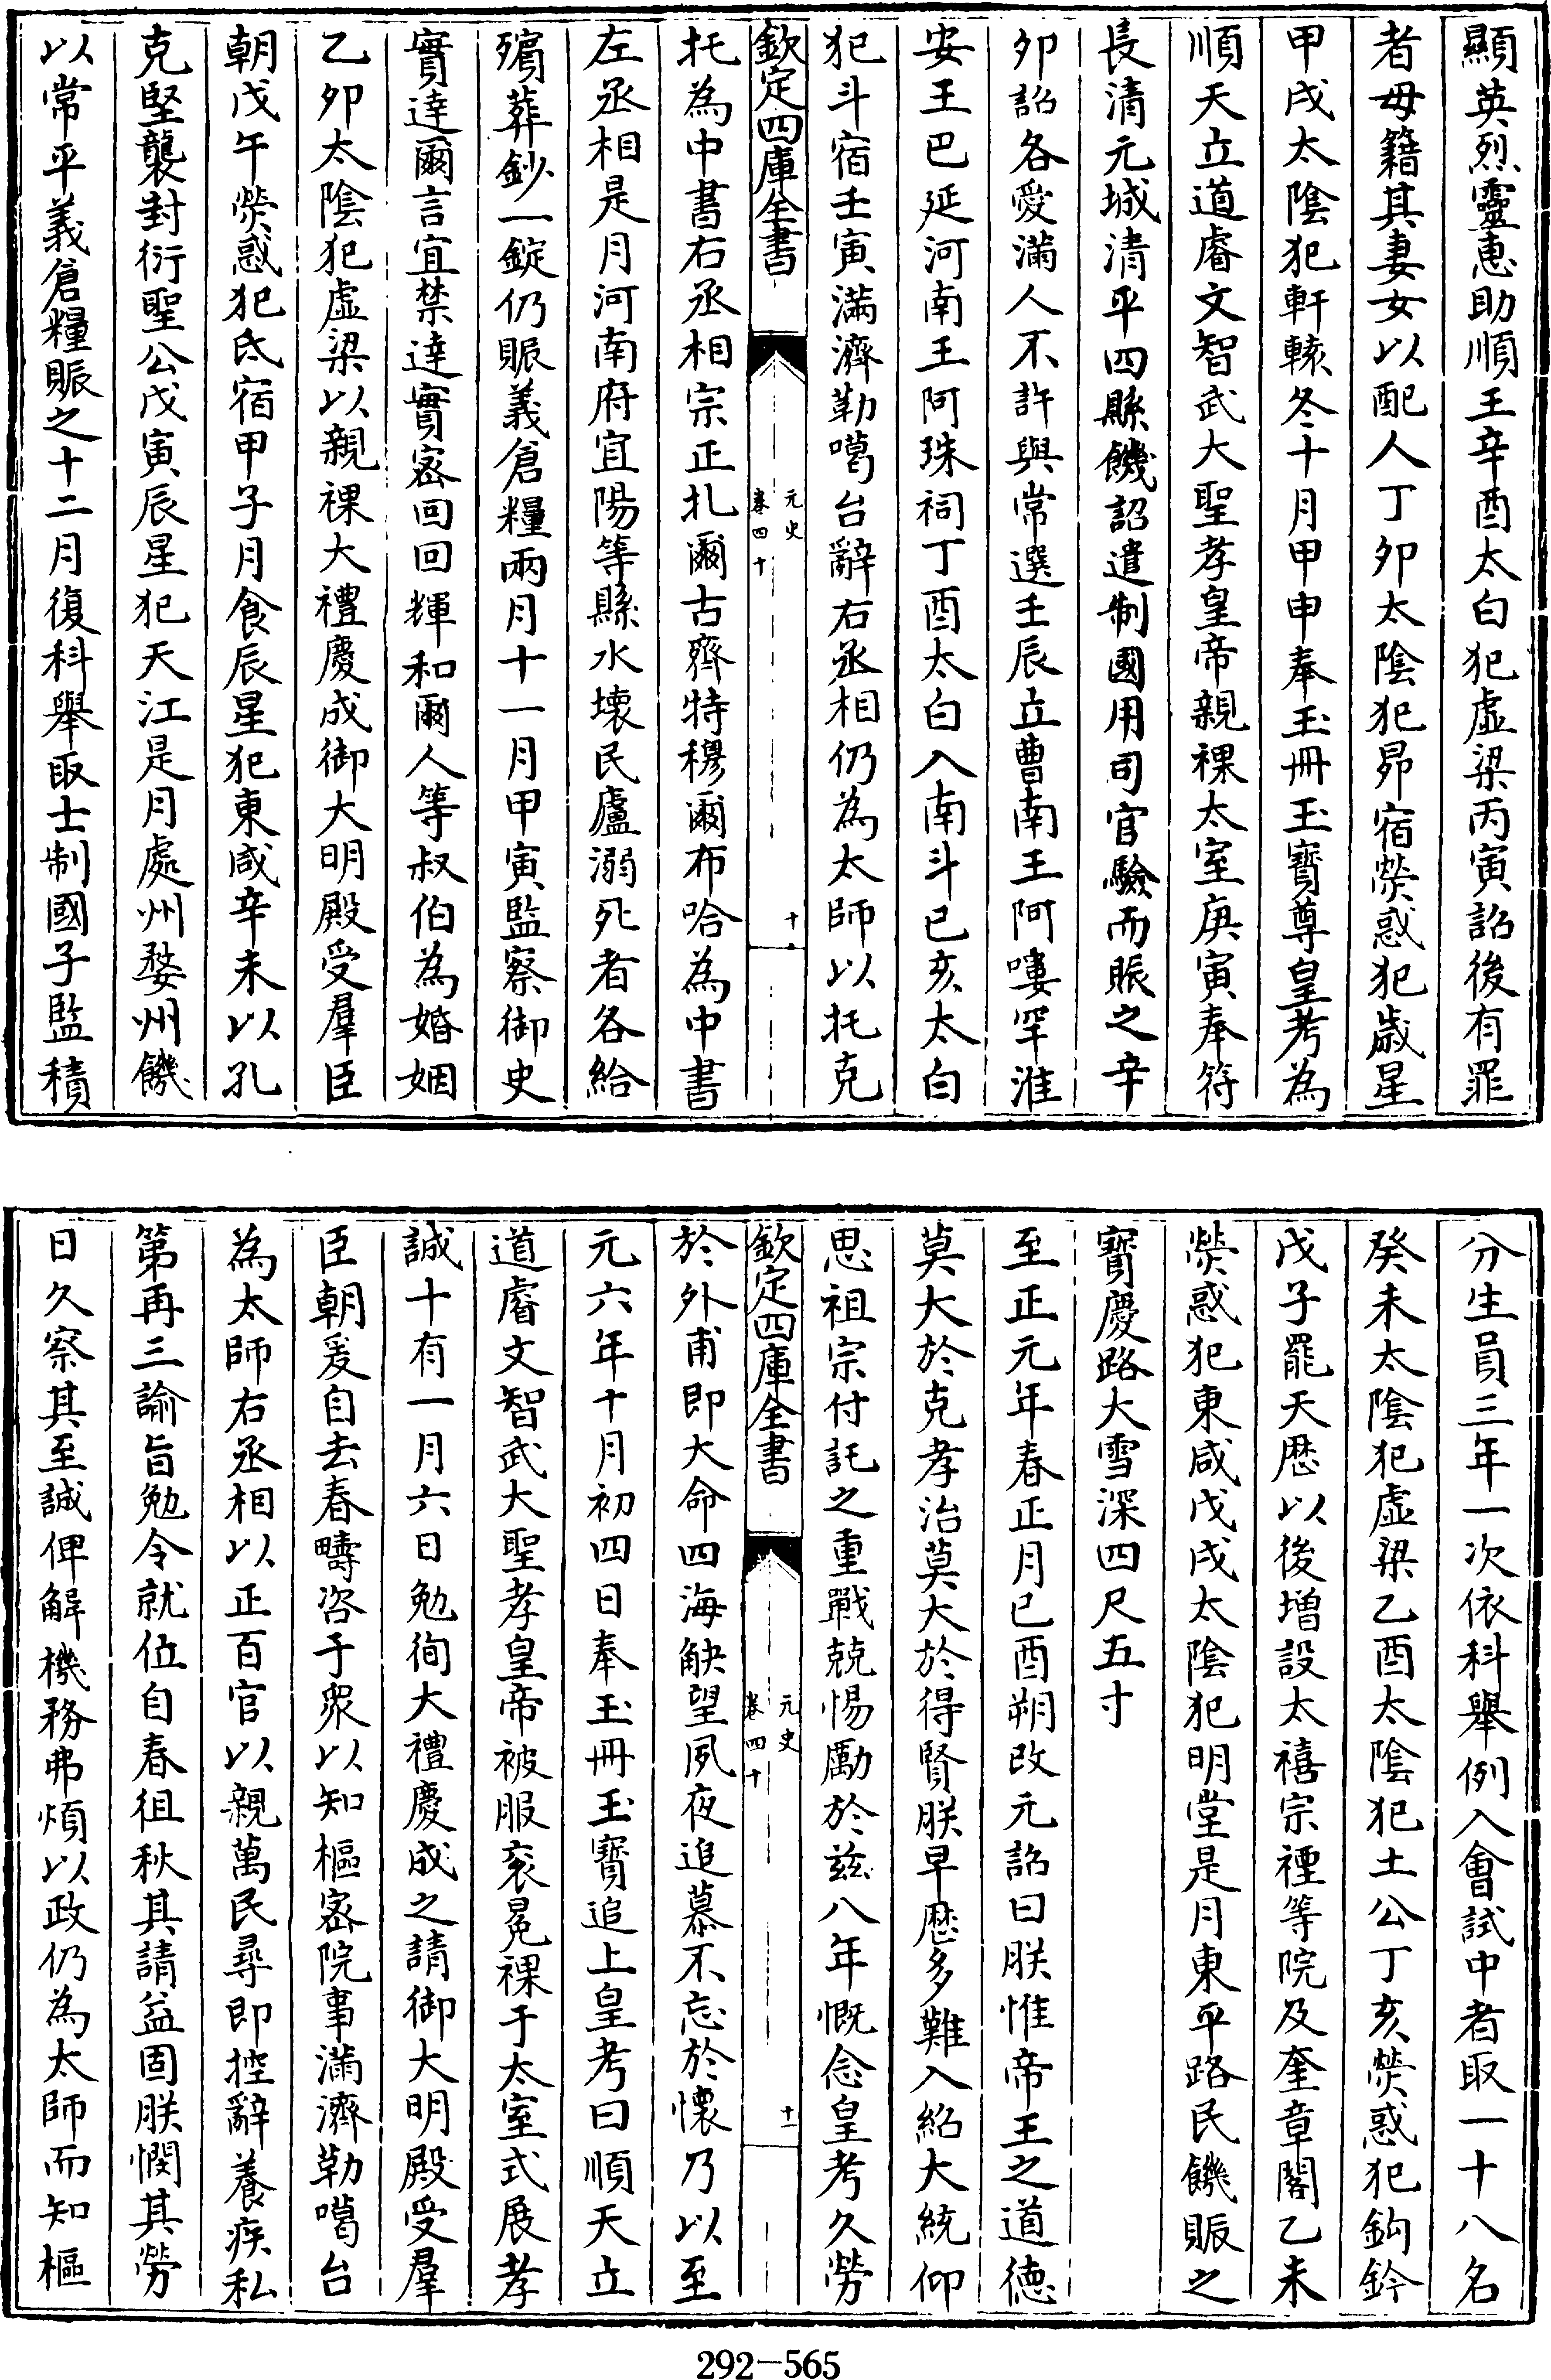 顯英烈靈惠助順王辛酉太白犯虛梁丙寅詔後有罪
者毋籍其妻女以配人丁卯太陰犯昴宿熒惑犯歲星
甲戌太陰犯軒轅冬十月甲申奉玉冊玉寶尊皇考為
順天立道睿文智武大聖孝皇帝親祼太室庚寅奉符
長清元城清平四縣饑詔遣制國用司官驗而賑之辛
夘詔各愛滿人不許與常選壬辰立曹南王阿嘍罕淮
安王巴延河南王阿珠祠丁酉太白入南斗已亥太白
犯斗宿壬寅滿濟勒噶台辭右丞相仍為太師以托克
欽定四庫全書
元史
卷四十
十
托為中書右丞相宗正扎爾古齊特穆爾布哈為中書
左丞相是月河南府宜陽等縣水壞民廬溺死者各給
殯葬鈔一錠仍賑義倉糧兩月十一月甲寅監察御史
實達爾言宜禁達實密回回輝和爾人等叔伯為婚姻
乙夘太陰犯虛梁以親祼大禮慶成御大明殿受羣臣
朝戊午熒惑犯氐宿甲子月食辰星犯東咸辛未以孔
克堅襲封衍聖公戊寅辰星犯天江是月處州婺州饑
以常平義倉糧賑之十二月復科舉取士制國子監積
分生員三年一次依科舉例入會試中者取一十八名
癸未太陰犯虛梁乙酉太陰犯土公丁亥熒惑犯鈎鈐
戊子罷天厯以後增設太禧宗禋等院及奎章閣乙未
熒惑犯東咸戊戌太陰犯明堂是月東平路民饑賑之
寳慶路大雪深四尺五寸
至正元年春正月已酉朔改元詔曰朕惟帝王之道德
莫大於克孝治莫大於得賢朕早厯多難入紹大統仰
思祖宗付託之重戰兢惕勵於兹八年慨念皇考久勞
欽定四庫全書
元史
卷四十
十一
於外甫即大命四海觖望夙夜追慕不忘於懷乃以至
元六年十月初四日奉玉冊玉寳追上皇考曰順天立
道睿文智武大聖孝皇帝被服衮冕祼于太室式展孝
誠十有一月六日勉徇大禮慶成之請御大明殿受羣
臣朝爰自去春疇咨于衆以知樞密院事滿濟勒噶台
為太師右丞相以正百官以親萬民尋即控辭養疾私
第再三諭旨勉令就位自春徂秋其請益固朕憫其勞
日久察其至誠俾解機務弗煩以政仍為太師而知樞
292-565